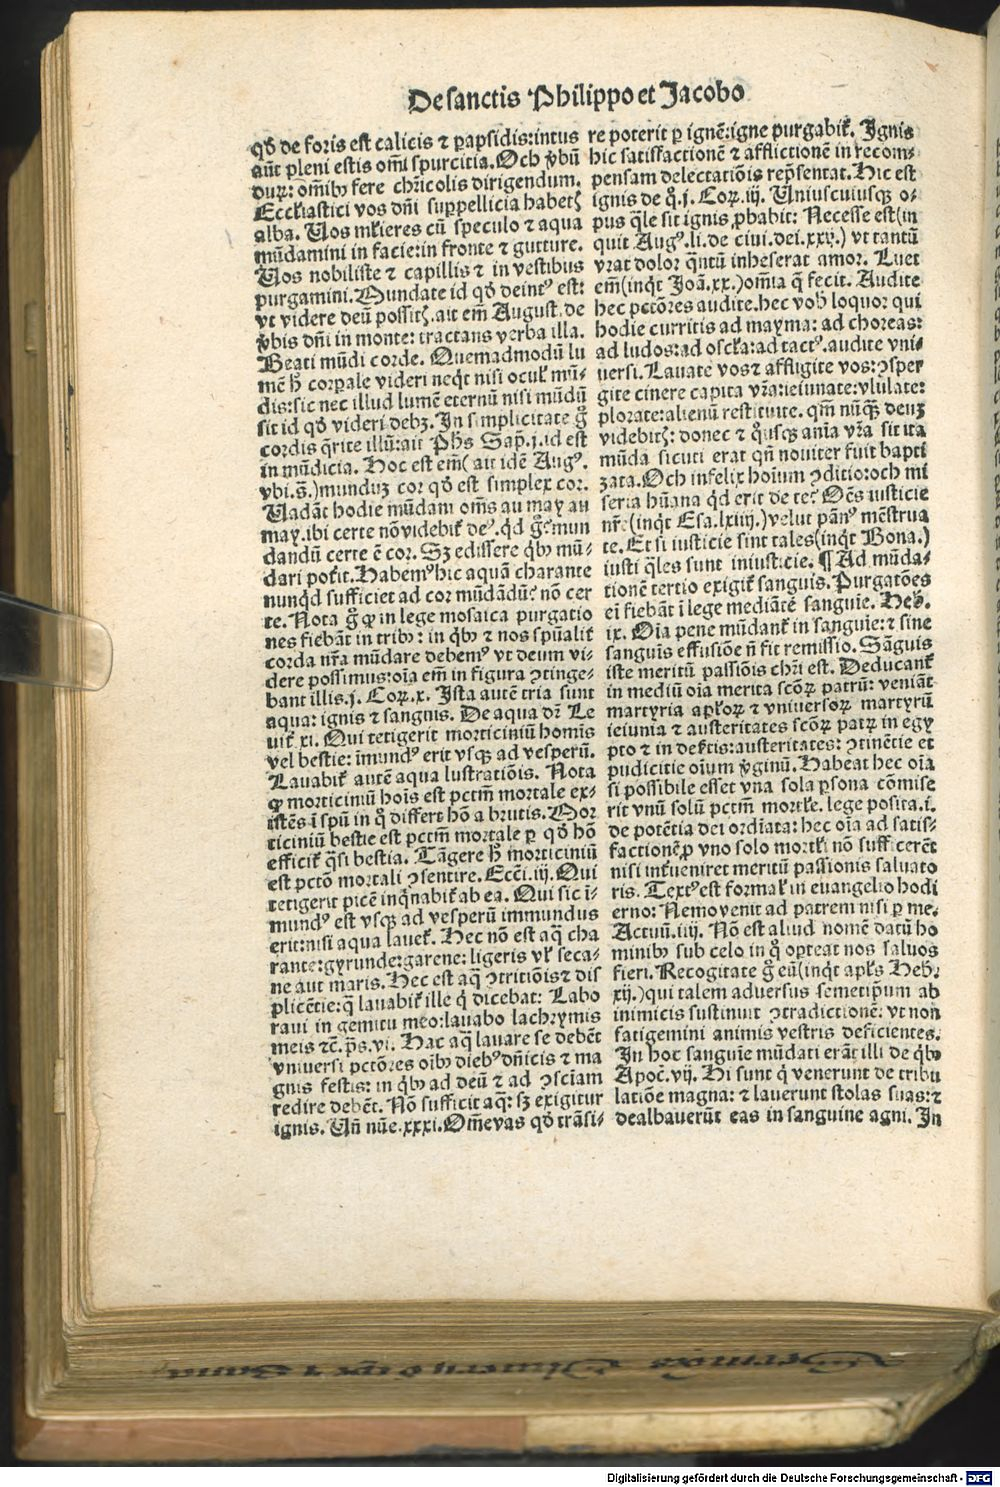 De sanctis Philippo et Jacobo
qđ de foris est calicis ⁊ papsidis: intus
aūt pleni estis om̄i spurcitia. Och v̄bū
durꝝ: om̄ibꝰ fere chr̄icolis dirigendum.
Eccl̄iastici vos dn̄i suppellicia habetꝭ
alba. Uos ml̄ieres cū speculo ⁊ aqua
mūdamini in facie: in fronte ⁊ gutture.
Uos nobiliste ⁊ capillis ⁊ in vestibus
purgamini. Mundate id qđ deintꝰ est:
vt videre deū possitꝭ. ait em̄ August. de
v̄bis dn̄i in monte: tractans verba illa.
Beati mūdi corde. Quemadmodū lu
mē h̄ corꝑale videri neqͥt nisi ocul̓ mū-
dis: sic nec illud lumē eternū nisi mūdū
sit id qđ videri debꝫ. In simplicitate g̊
cordis q̄rite illū: ait Ph̄s Sap̄. j. id est
in mūdicia. Hoc est em̄ (ait idē Augꝰ.
vbi. s̄.) munduꝫ cor qđ est simplex cor.
Uadāt hodie mūdam om̄s au may au
may. ibi certe nō videbit̄ deꝰ. qͥd g̊? mun
dandū certe ē cor. Sꝫ edissere qͥbꝰ mū-
dari pot̓it. Habemꝰ hic aquā charante
nunqͥd sufficiet ad cor mūdādū? nō cer
te. Nota g̊ ꝙ in lege mosaica purgatio
nes fiebāt in tribꝰ: in qͥbꝰ ⁊ nos sp̄ualit̓
corda nr̄a mūdare debemꝰ vt deum vi-
dere possimus: oīa em̄ in figura ꝯtinge-
bant illis. j. Corꝝ. x. Ista autē tria sunt
aqua: ignis ⁊ sanguis. De aqua dr̄ Le
uit̓. xi. Qui tetigerit morticiniū homīs
vel bestie: īmundꝰ erit vsqꝫ ad vesperū.
Lauabit̓ autē aqua lustratiōis. Nota
ꝙ morticiniū hoīs est pctm̄ mortale ex-
istēs ī sp̄u in qͦ differt hō a brutis. Mor
ticiniū bestie est pctm̄ mortale ꝑ qđ hō
efficit̓ q̄si bestia. Tāgere h̄ morticiniū
est pctō mortali ꝯsentire. Ecc̄i. iij. Qui
tetigerit picē inqͥnabit̓ ab ea. Qui sic ī-
mundꝰ est vsqꝫ ad vesperū immundus
erit: nisi aqua lauet̓. Hec nō est aq̄ cha
rante: gyrunde: garene: ligeris vl̓ seca-
ne aut maris. Hec est aq̄ ꝯtritiōis ⁊ dis
plicētie: q̄ lauabit̓ ille qͥ dicebat: Labo
raui in gemitu meo: lauabo lachrymis
meis ⁊c̄. p̄s. vi. Hac aq̄ lauare se debēt
vniuersi pctōres oībꝰ diebꝰ dn̄icis ⁊ ma
gnis festis: in qͥbꝰ ad deū ⁊ ad ꝯsciam
redire debēt. Nō sufficit aq̄: sꝫ exigitur
ignis. Un̄ nūe. xxxi. Om̄e vas qđ trāsi-
re poterit ꝑ ignē: igne purgabit̓. Ignis
hic satisfactionē ⁊ afflictionē in recom-
pensam delectatiōis rep̄sentat. Hic est
ignis de qͦ. j. Corꝝ. iij. Uniuscuiusqꝫ o-
pus q̄le sit ignis ꝓbabit: Necesse est (in
quit Augꝰ. li. de ciui. dei. xxij.) vt tantū
vrat dolor q̄ntū inheserat amor. Luet
em̄ (inqͥt Joā. xx.) om̄ia q̄ fecit. Audite
hec pctōres audite. hec vob̓ loquor qui
hodie curritis ad mayma: ad choreas:
ad ludos: ad oscl̓a: ad tactꝰ. audite vni
uersi. Lauate vos ⁊ affligite vos: ꝯsper
gite cinere capita vr̄a: ieiunate: vlulate:
plorate: alienū restituite. qm̄ nūq̄ꝫ deuꝫ
videbitꝭ: donec ⁊ qͦusqꝫ anīa vr̄a sit ita
mūda sicuti erat qn̄ nouiter fuit bapti
zata. Och infelix hoīum ꝯditio: och mi
seria hūana qͥd erit de te? Oēs iusticie
nr̄e (inqͥt Esa. lxiiij.) velut pānꝰ mēstrua
te. Et si iusticie sint tales (inqͥt Bona.)
iusti q̄les sunt iniusticie. ¶ Ad mūda-
tionē tertio exigit̓ sanguis. Purgatōes
eī fiebāt ī lege mediāte sanguīe. Heb̓.
ix. Oīa pene mūdant̓ in sanguīe: ⁊ sine
sanguīs effusiōe n̄ fit remissio. Sāguis
iste meritū passiōis chr̄i est. Deducant̓
in mediū oīa merita scōꝝ patrū: veniāt
martyria apl̓oꝝ ⁊ vniuersoꝝ martyrū
ieiunia ⁊ austeritates scōꝝ patꝝ in egy
pto ⁊ in dest̓is: austeritates: ꝯtinētie et
pudicitie oīum v̓ginū. Habeat hec oīa
si possibile esset vna sola ꝑsona cōmise
rit vnū solū pctm̄ mortl̓e. lege posita. i.
de potētia dei ordīata: hec oīa ad satis-
factionē ꝓ vno solo mortl̓i nō sufficerēt
nisi int̓ueniret meritū passionis saluato
ris. Textꝰ est formal̓ in euangelio hodi
erno: Nemo venit ad patrem nisi ꝑ me.
Actuū. iiij. Nō est aliud nomē datū ho
minibꝰ sub celo in qͦ oꝑteat nos saluos
fieri. Recogitate g̊ eū (inqͥt apl̓s Heb̓.
xij.) qui talem aduersus semetip̄um ab
inimicis sustinuit ꝯtradictionē: vt non
fatigemini animis vestris deficientes.
In hoc sanguīe mūdati erāt illi de qͥbꝰ
Apoc̄. vij. Hi sunt qͥ venerunt de tribu
latiōe magna: ⁊ lauerunt stolas suas: ⁊
dealbauerūt eas in sanguine agni. In
Digitalisierung gefördert durch die Deutsche Forschungsgemeinschaft - DFG